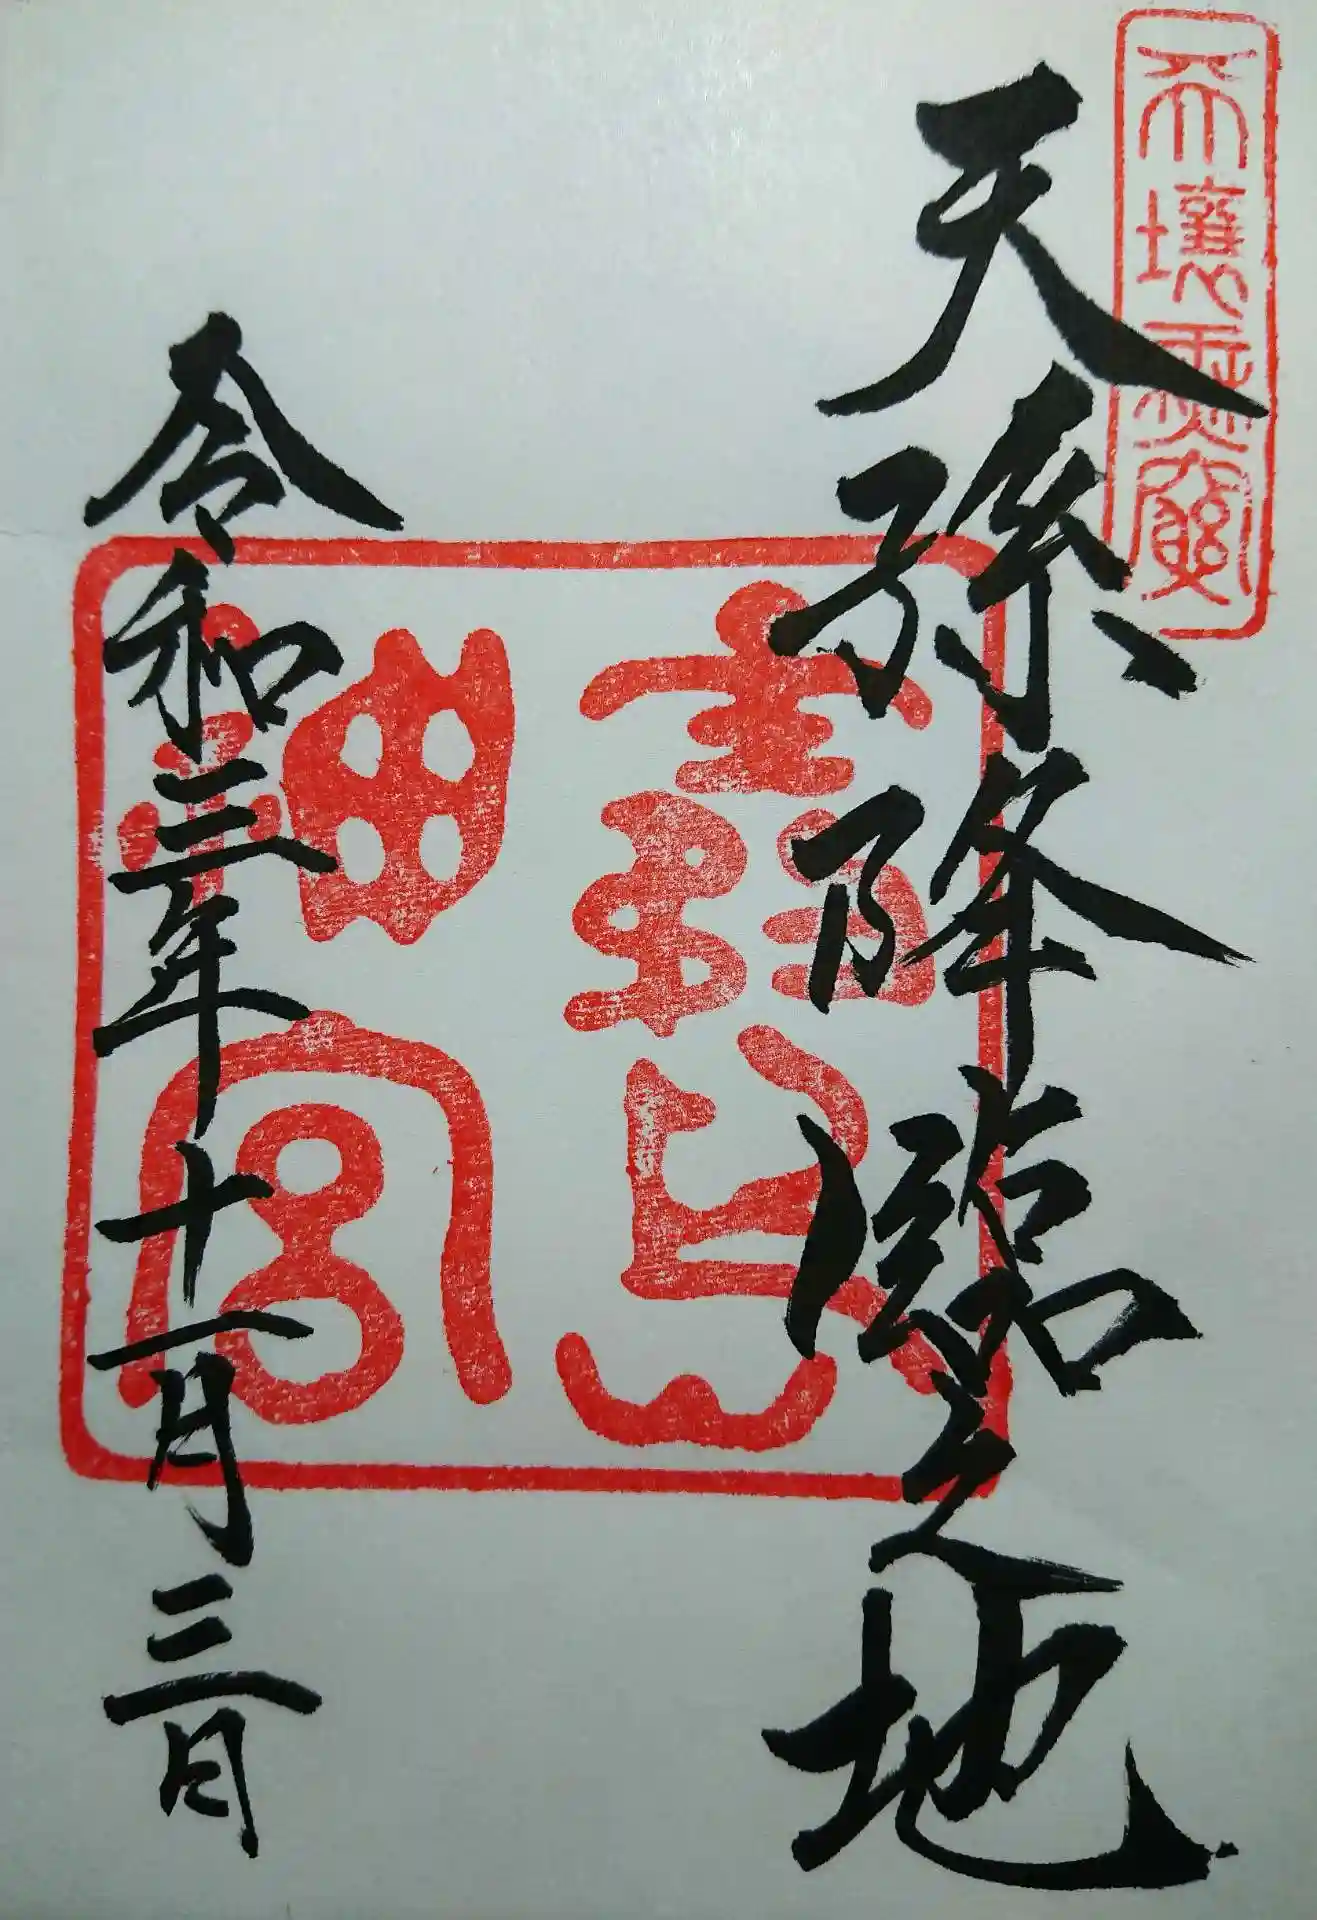 天壤無窮
天孫降臨之地
霧島
神宮
令和三年十一月三日